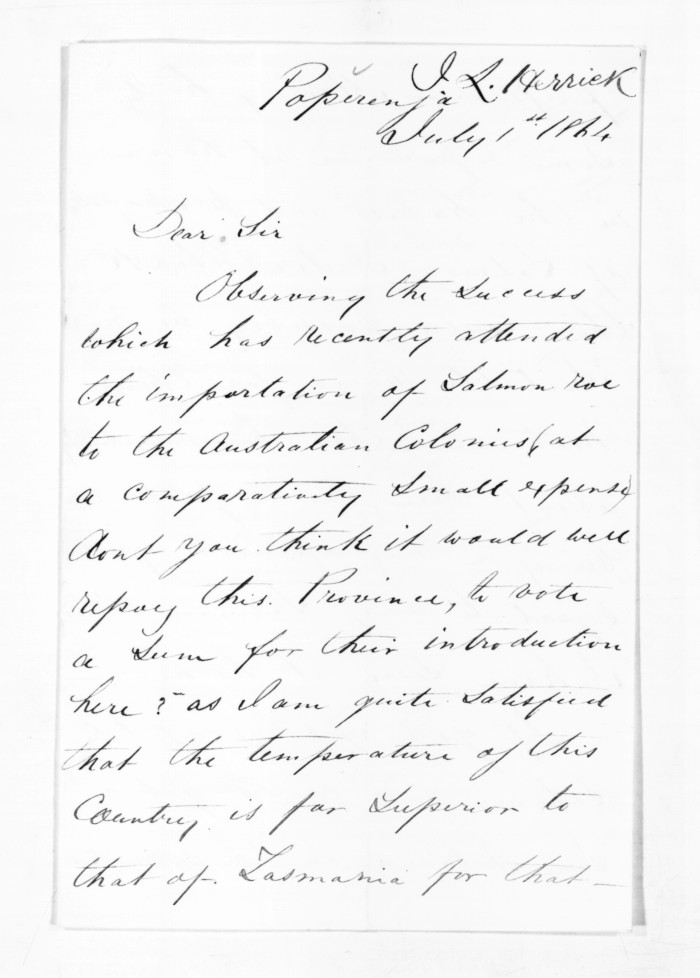 J. L. Herrick
Poperenja
July 1st 1864
Dear Sir
Observing the success
which has recently attended
the importation of Salmon roe
to the Australian Colonies (at
a comparatively small expense)
dont you think it would well
repay this Province, to vote
a sum for their introduction
here? as I am quite satisfied
that the temperature of this
Country is far superior to
that of Tasmania for that